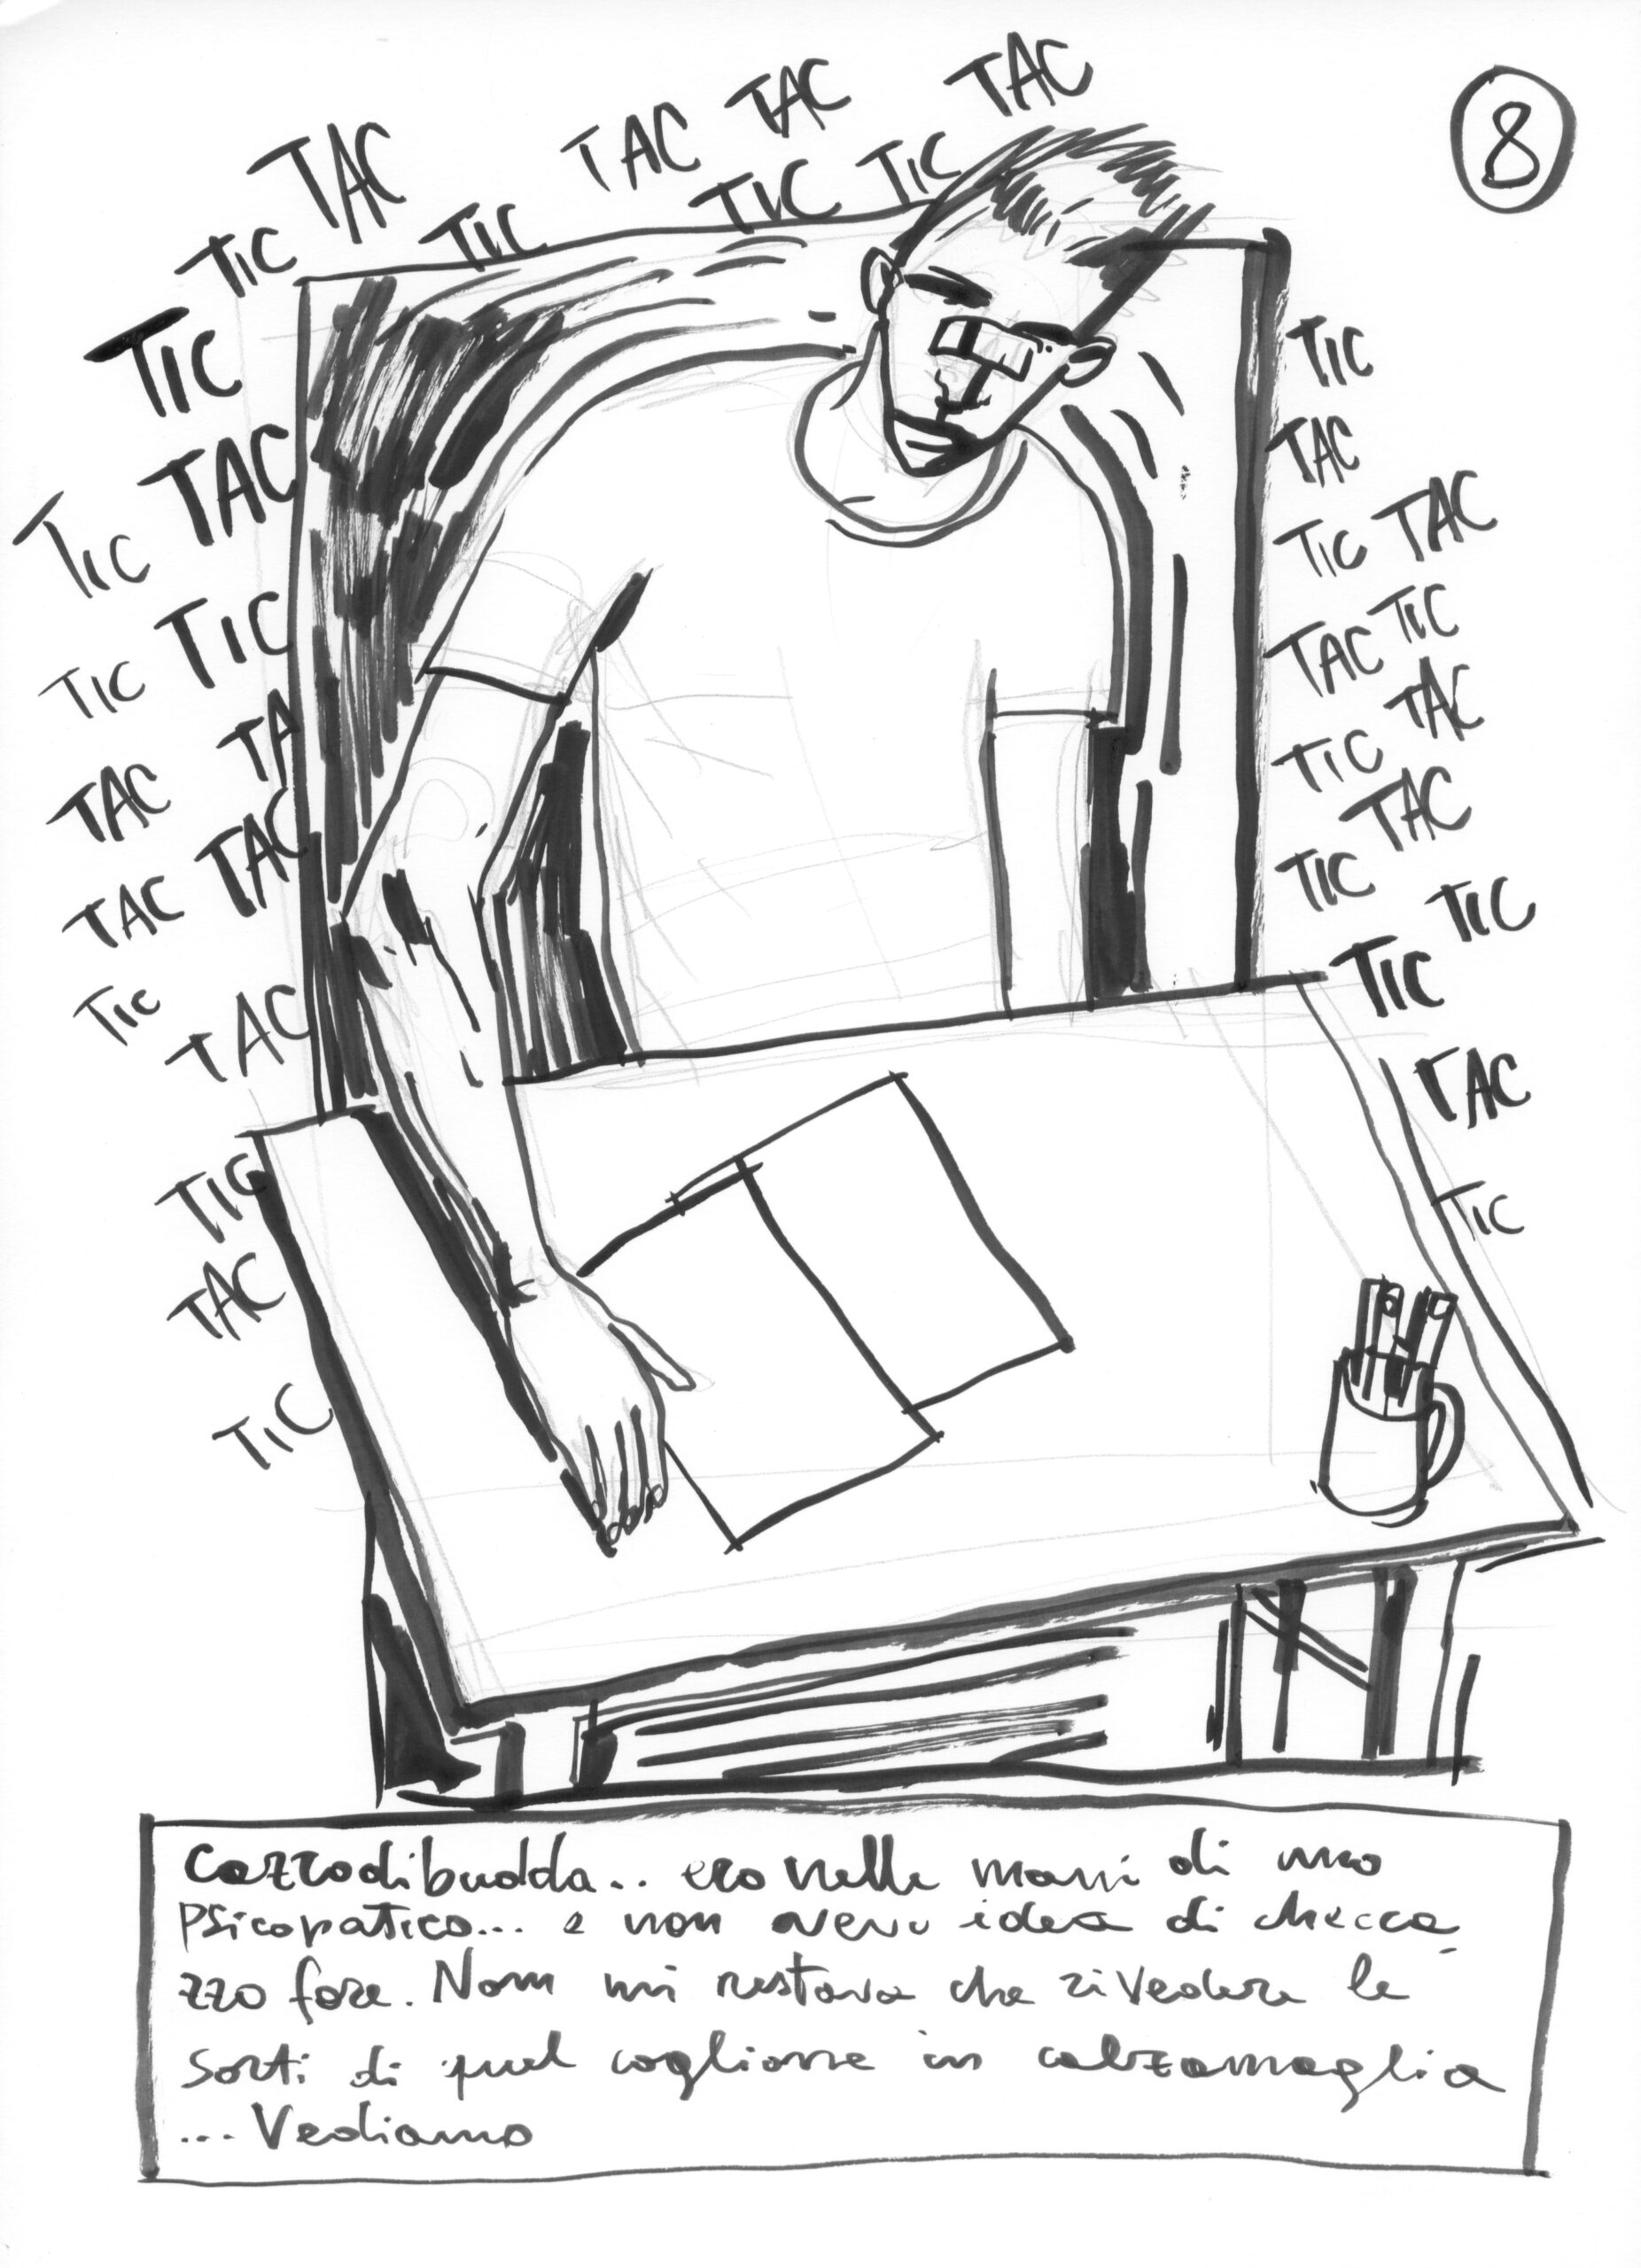 TAC
TAC TAC
TIC TIC
TAC
TIC TIC
8
TIC
TAC
TIC
TIC TIC
TAC TA
TAC TAC
TIC
TAC
TIC
TAC
TIC
TIC
TAC
TIC TAC
TAC TIC
TIC TAC
TIC TAC
TIC TIC
TAC
TIC
Cazzodibudda.. ero nelle mani di uno
Psicopatico... e non avevo idea di checca
zzo fare. Non mi restava che rivedere le
Sorti di quel coglione in calzamaglia
... Vediamo